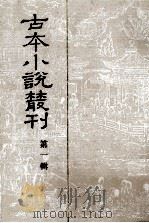 古本小說叢刊
第一輯